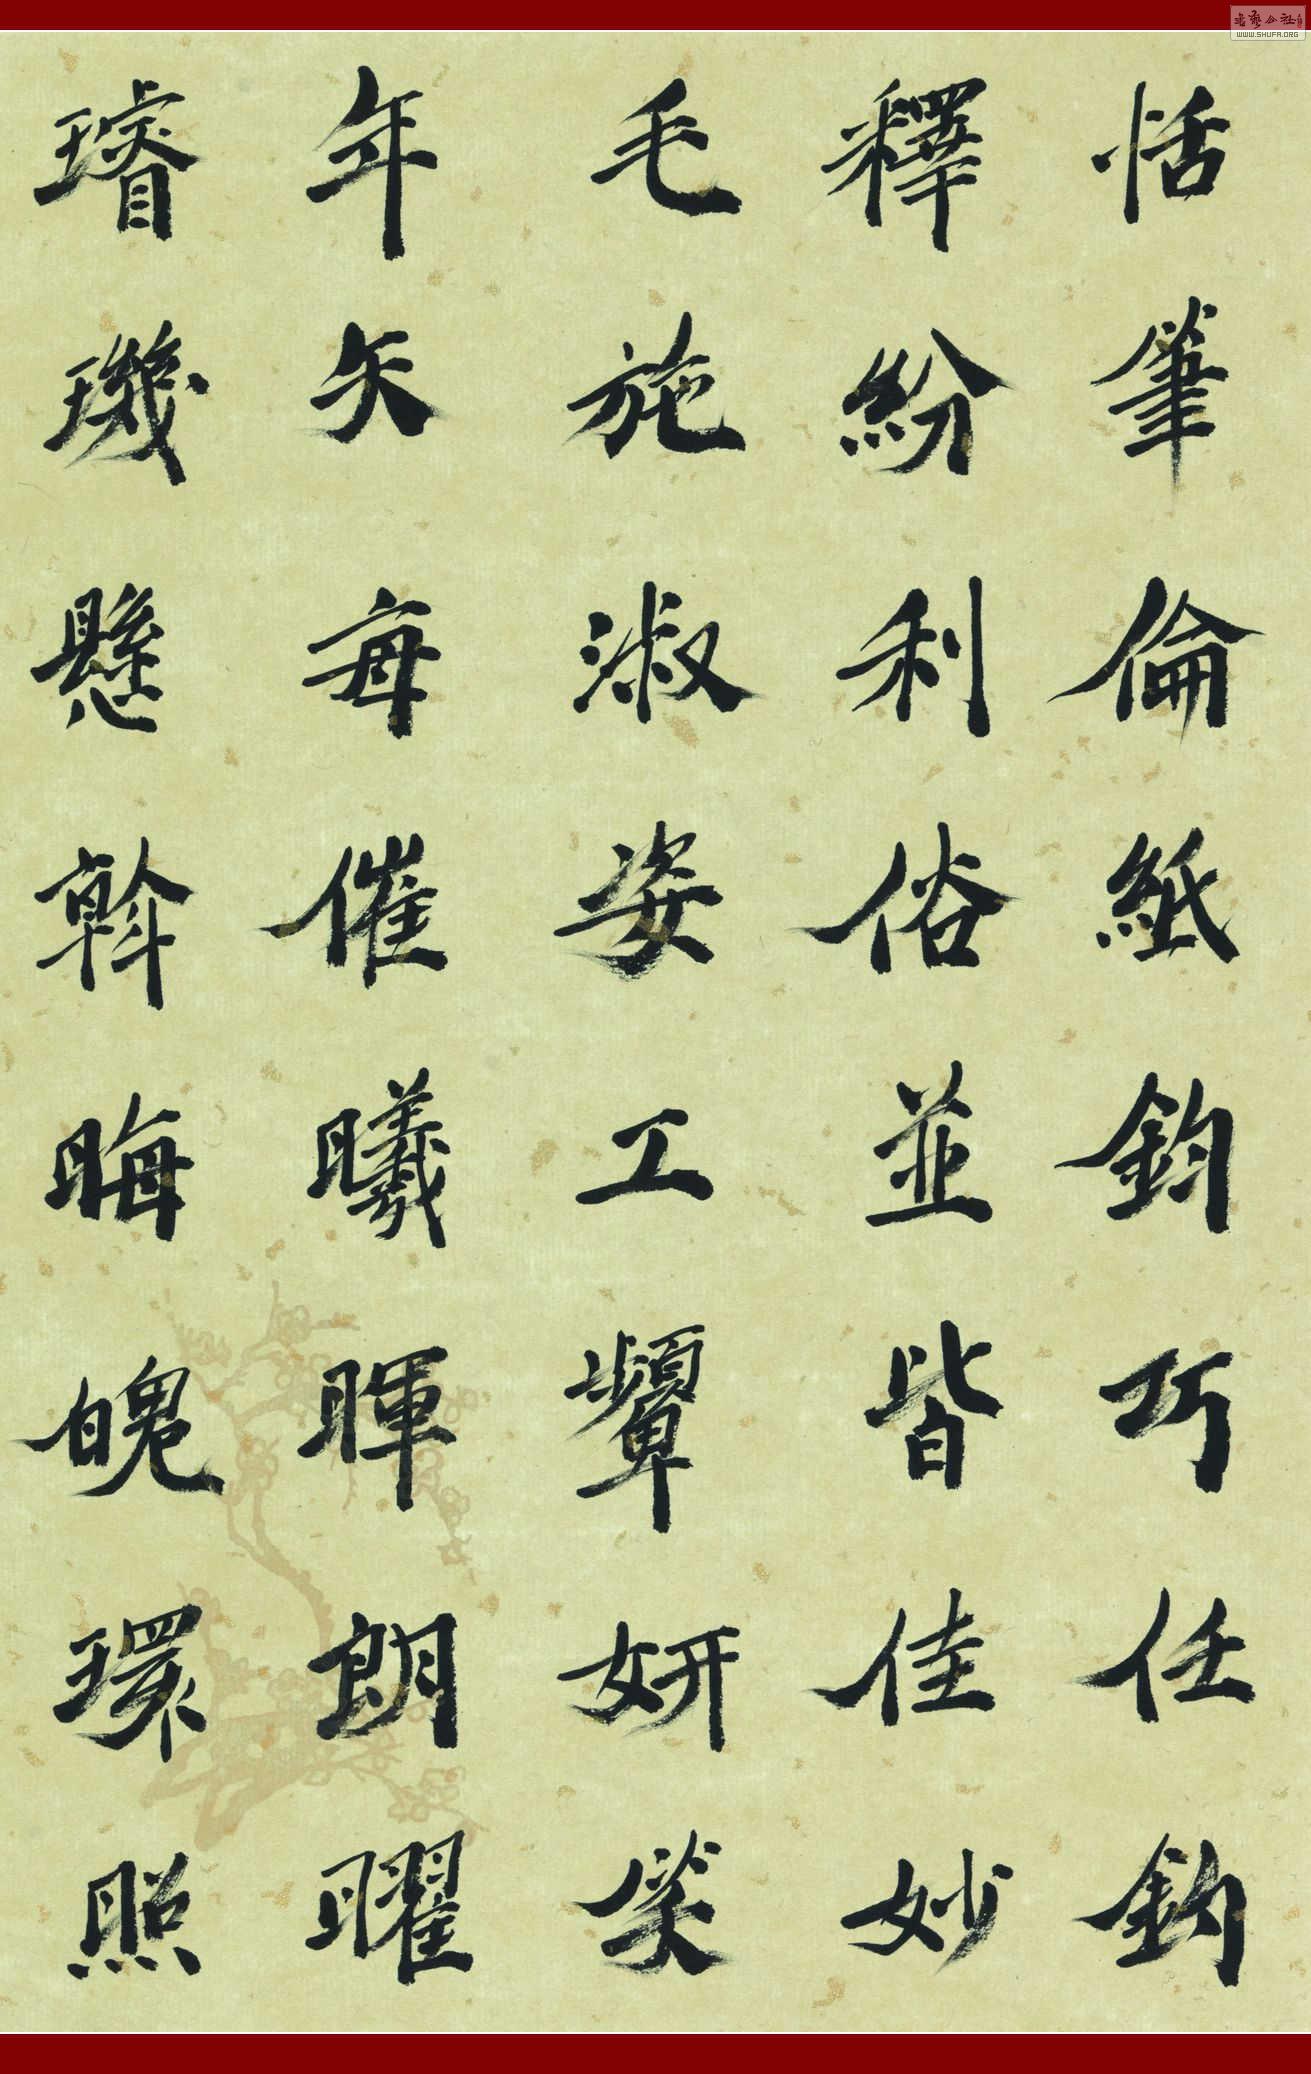 恬筆倫紙鈞巧任釣
釋紛利俗並皆佳妙
毛施淑姿工顰妍笑
年矢每催曦暉朗曜
璿璣懸斡晦魄環照
WWW.SHUFA.ORG